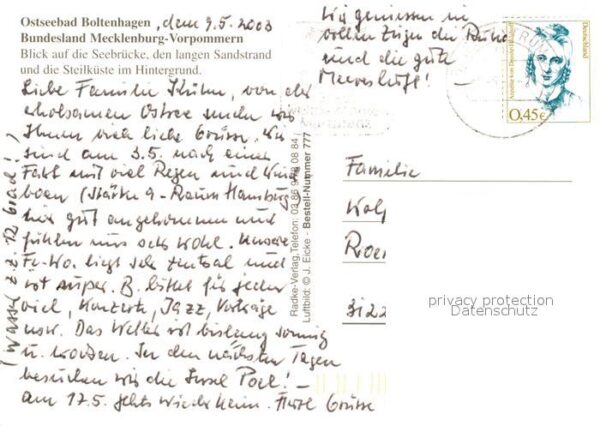 Ostseebad Boltenhagen, dem 9.5.2003
Bundesland Mecklenburg-Vorpommern
Blick auf die Seebrücke, den langen Sandstrand
und die Steilküste im Hintergrund.
Liebe Familie von der
erholsamen Ostsee senden wir
Ihnen viele liebe Grüße. Wir
sind am 3.5. nach einer
Fahrt mit viel Regen und Wind-
böen (Stärke 9 - Raum Hamburg)
hier gut angekommen und
fühlen uns sehr wohl. Unsere
Fe-Wo. liegt sehr zentral und
ist super. B. bietet für jeden
viel, Konzerte, Jazz, Vorträge
usw. Das Wetter ist bislang sonnig
u. trocken. In den nächsten Tagen
besuchen wir die Insel Poel! -
am 17.5. gehts wieder heim. Herzl. Grüsse
(Wasser z.Z. 12 Grad!)
Wir genießen in
vollen Zügen die Ruhe
und die gute
Meeresluft!
Radke-Verlag, Telefon: 03 86
Luftbild: © J. Ecke · Bestell-Nummer 777
Deutschland
Annette von Droste-Hülshoff
0,45€
Familie
Roe
3122
privacy protection
Datenschutz